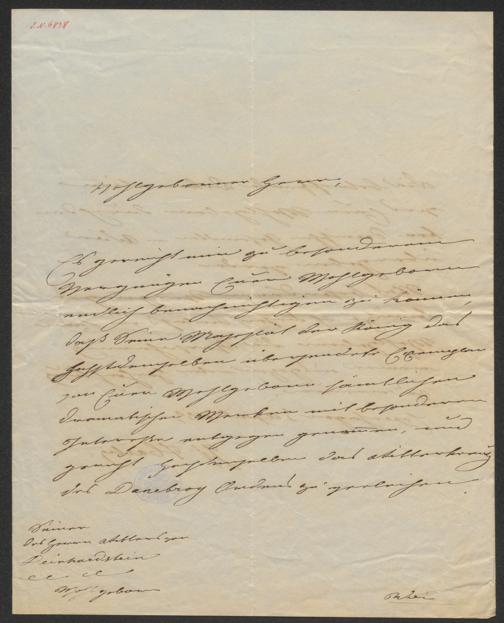 I.N. 6838
Wohlgeborener Herr,
Es gereicht mir zu besonderem
Vergnügen Euer Wohlgeboren
endlich benachrichtigen zu können,
daß Seine Majestät der König das
Höchstdemselben übersendete Exemplar
von Euer Wohlgeboren sämtlichen
dramatischen Werken mit besonderem
Interesse entgegen genommen, und
geruht Höchstdieselben das Ritterkreuz
des Danebrog Ordens zu verleihen.
Seiner
des Herrn Ritters von
Deinhardstein
Wohlgeboren